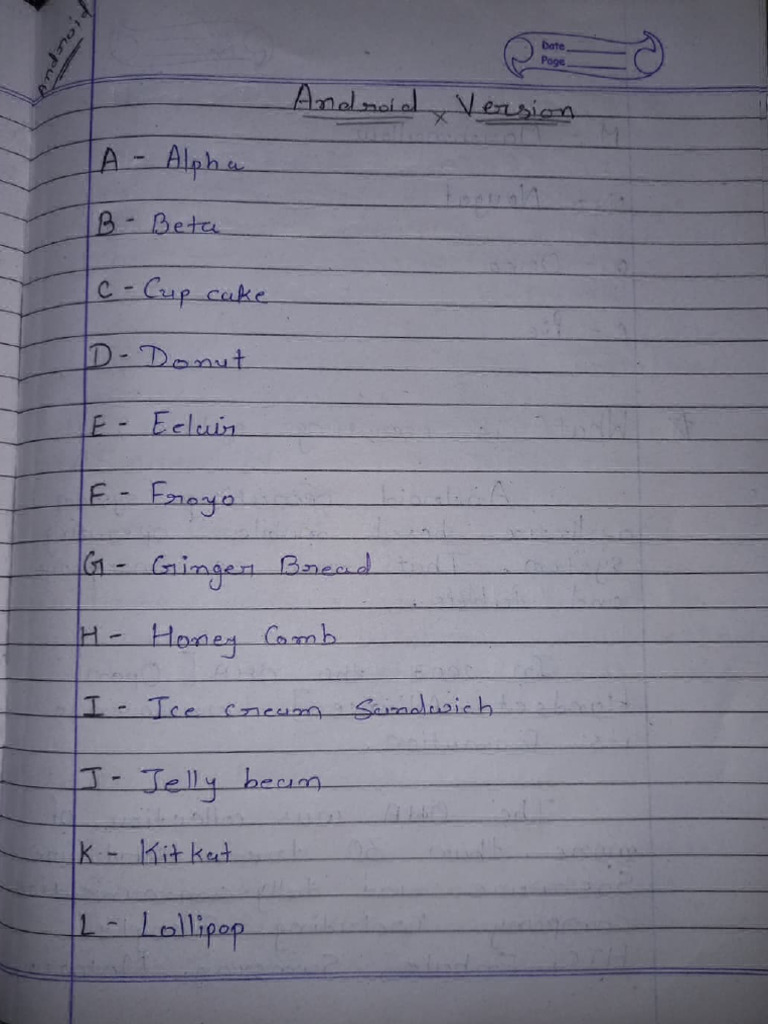 Android
Date
Page
Android x Version
A - Alpha
B - Beta
C - Cup cake
D - Donut
E - Eclair
F - Froyo
G - Ginger Bread
H - Honey Comb
I - Ice cream Sandwich
J - Jelly bean
K - Kitkat
L - Lollipop